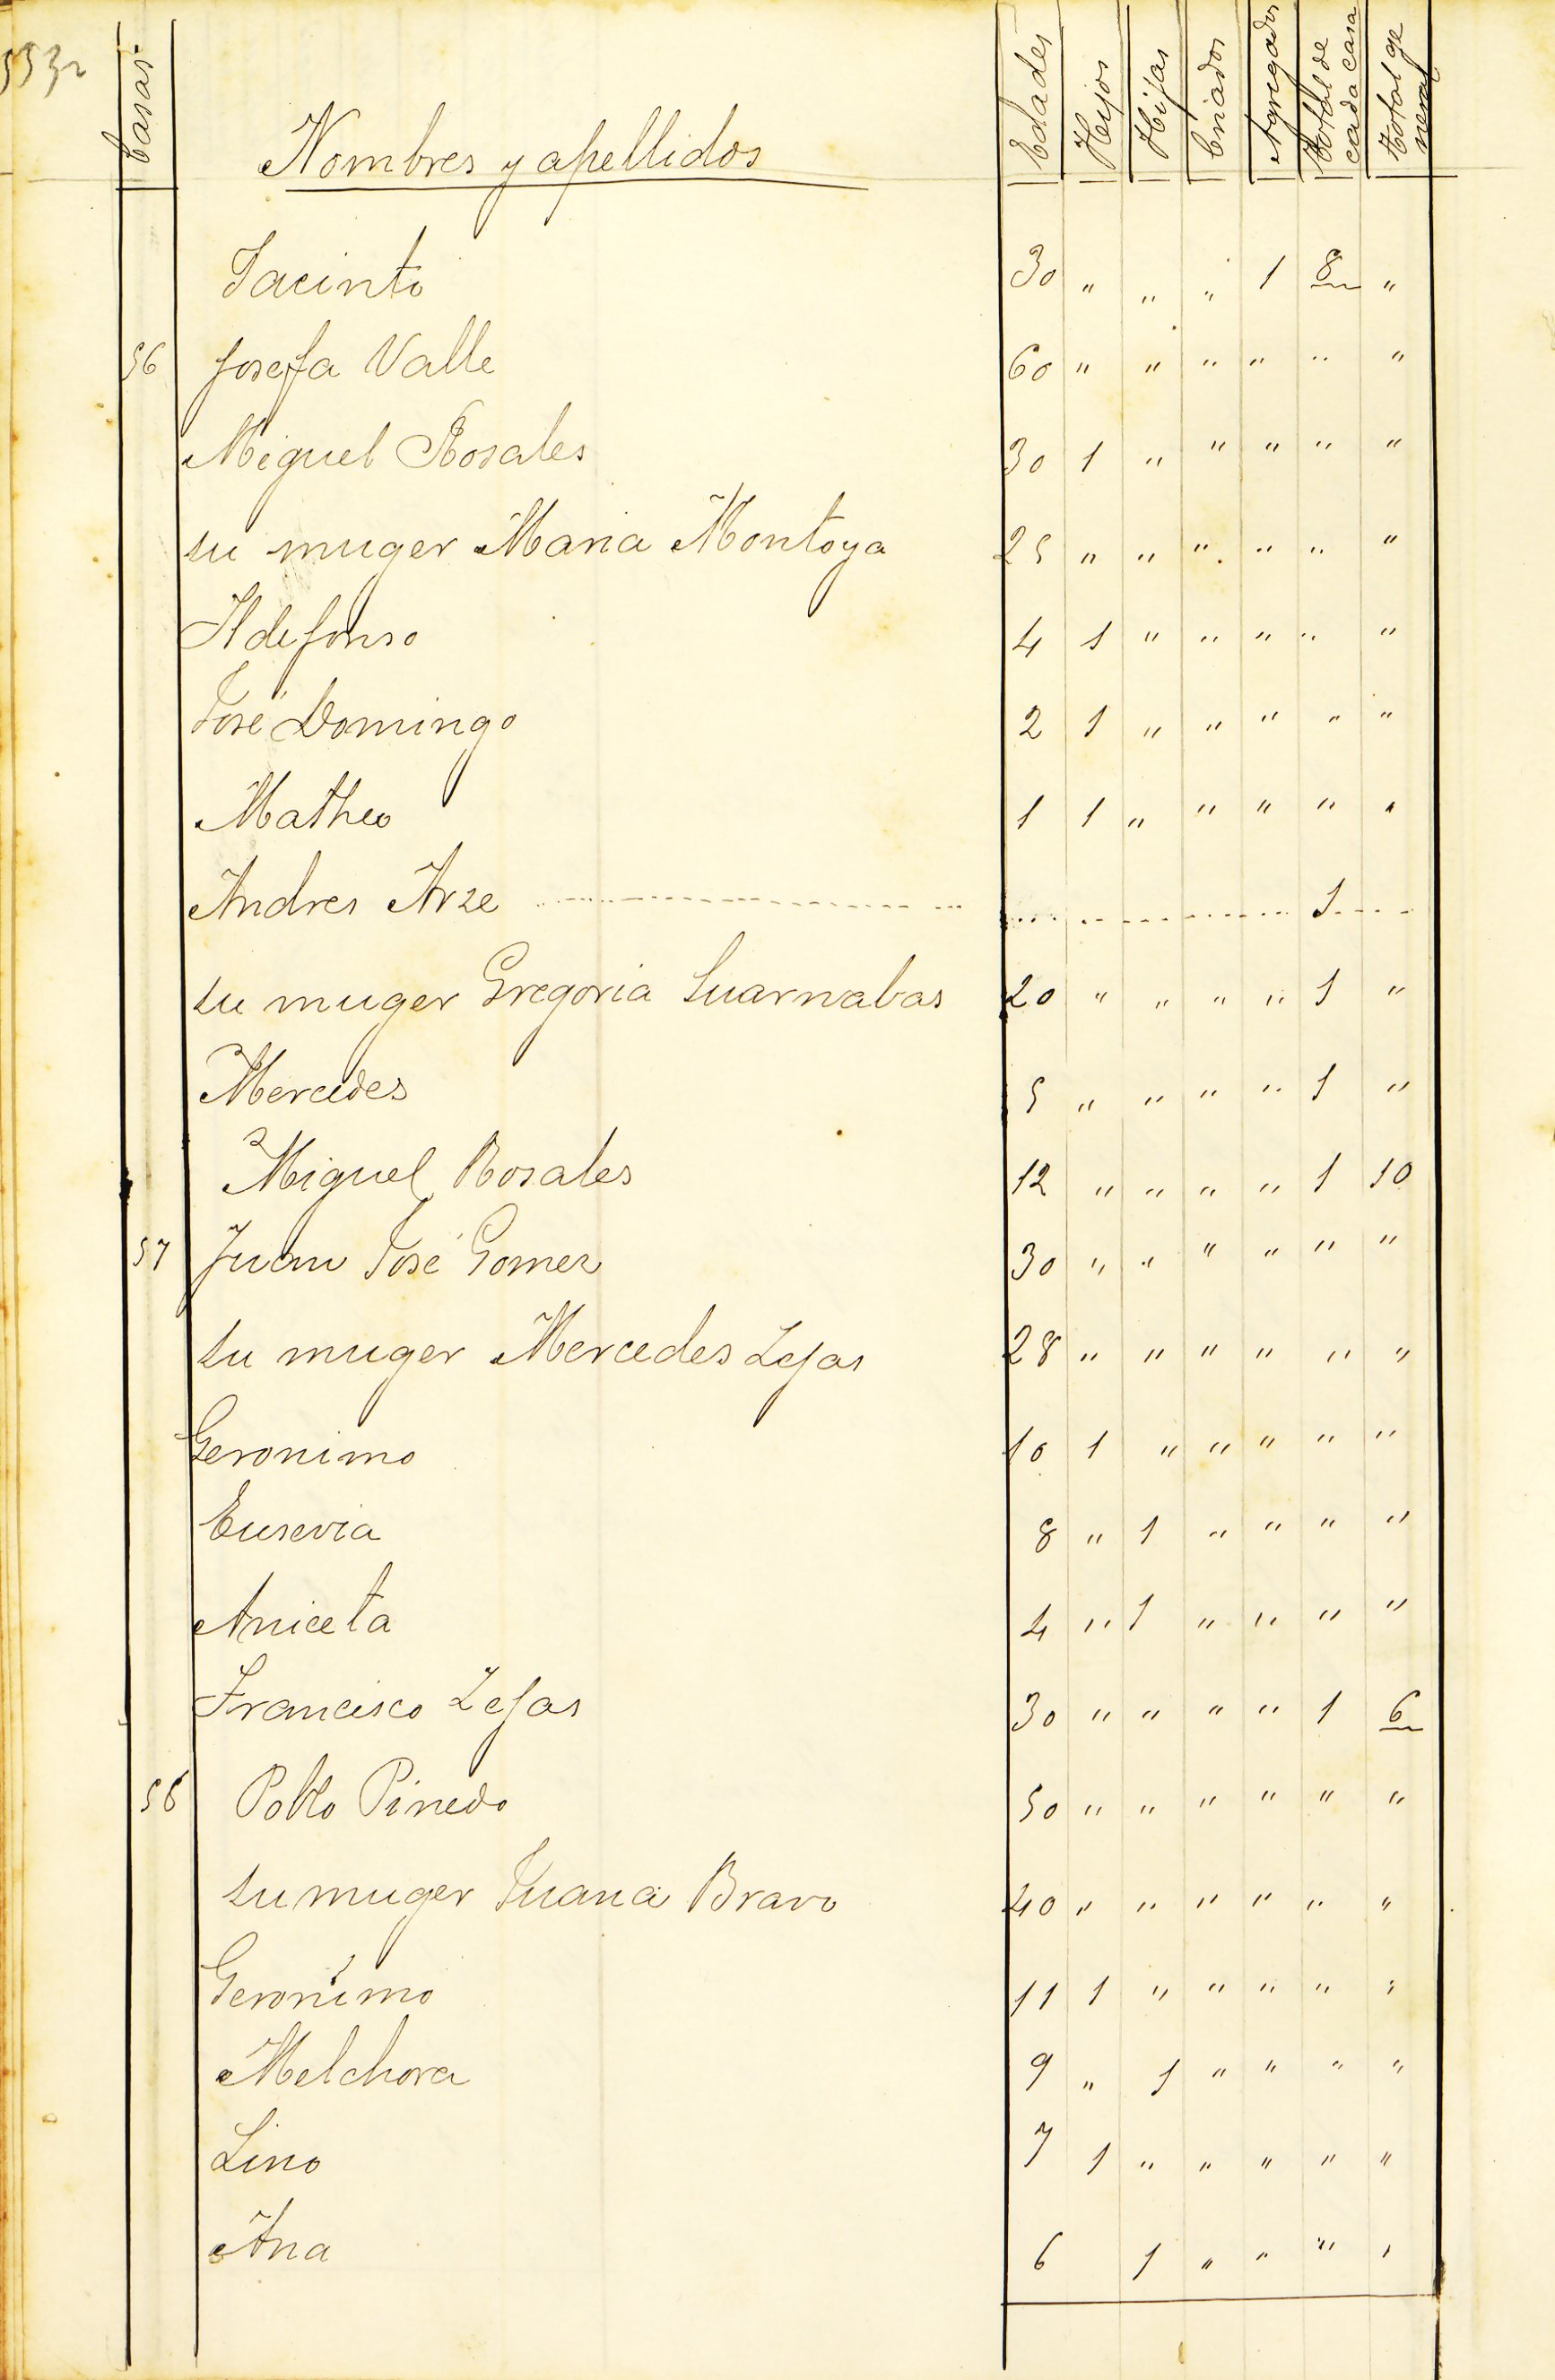 Casas Nombres y apellidos Edades Hijos Hijas Criados Agregados Total de cada casa Total general
Jacinto 30 " " " 1 8 "
56 Josefa Valle 60 " " " " " "
Miguel Rosales 30 1 " " " " "
su muger Maria Montoya 25 " " " " " "
Ildefonso 4 1 " " " " "
José Domingo 2 1 " " " " "
Matheo 1 1 " " " " "
Andres Arze 1
su muger Gregoria Suarnabas 20 " " " " 1 "
Mercedes 5 " " " " 1 "
Miguel Rosales 12 " " " " 1 10
57 Juan José Gomez 30 " " " " " "
su muger Mercedes Zejas 28 " " " " " "
Geronimo 10 1 " " " " "
Eusevia 8 " 1 " " " "
Aniceta 4 " 1 " " " "
Francisco Zejas 30 " " " " 1 6
58 Pablo Pinedo 50 " " " " " "
su muger Juana Bravo 40 " " " " " "
Geronimo 11 1 " " " " "
Melchora 9 " 1 " " " "
Lino 7 1 " " " " "
Ana 6 1 " " " "